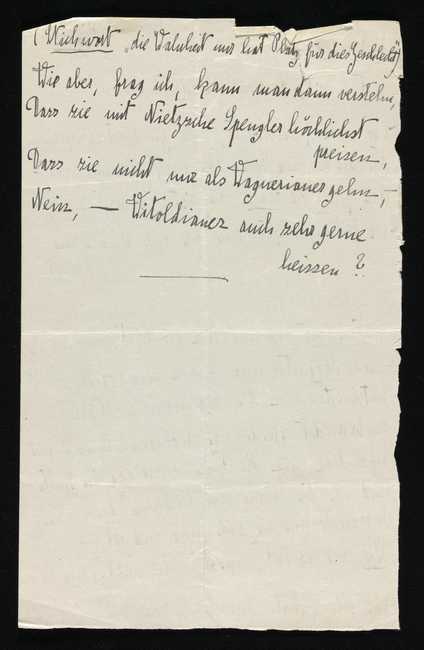 ( Stichwort „die Wahrheit nur hat Platz für dies Geschlecht")
Wie aber, frag ich, kann man dann verstehn,
Dass sie mit Nietzsche Spengler höchlichst
preisen,
Dass sie nicht nur als Wagnerianer gehn, –
Nein, – Witoldianer auch sehr gerne
heissen ?